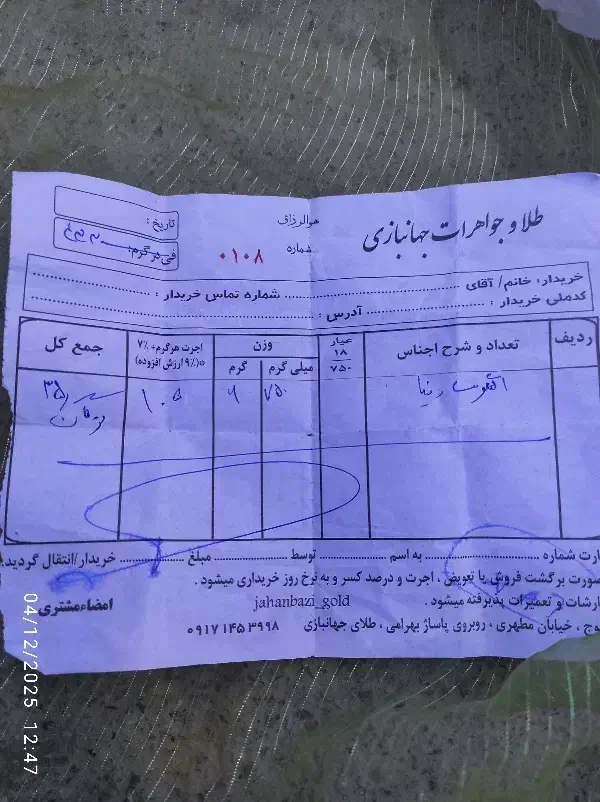 هوالرزاق
طلا و جواهرات جهانبازی
شماره ۰۱۰۸
تاریخ :
فی هر گرم:
خریدار: خانم/ آقای ........ شماره تماس خریدار :
کدملی خریدار : ........ آدرس :
ردیف تعداد و شرح اجناس عیار ۱۸ ۷۵۰ وزن میلی گرم گرم اجرت هرگرم+ ۷٪ +(۹٪ ارزش افزوده) جمع کل
۷۵۰ ۶ ۱۰٪ ۳۵
تومان
ارت شماره ........ به اسم ........ توسط ........ مبلغ ........ خریدار/انتقال گردید.
صورت برگشت فروش یا تعویض ، اجرت و درصد کسر و به نرخ روز خریداری میشود .
ارشات و تعمیرات پذیرفته میشود . jahanbazi_gold امضاءمشتری
وج ، خیابان مطهری ، روبروی پاساژ بهرامی ، طلای جهانبازی ۰۹۱۷۱۴۵۳۹۹۸
04/12/2025 12:47